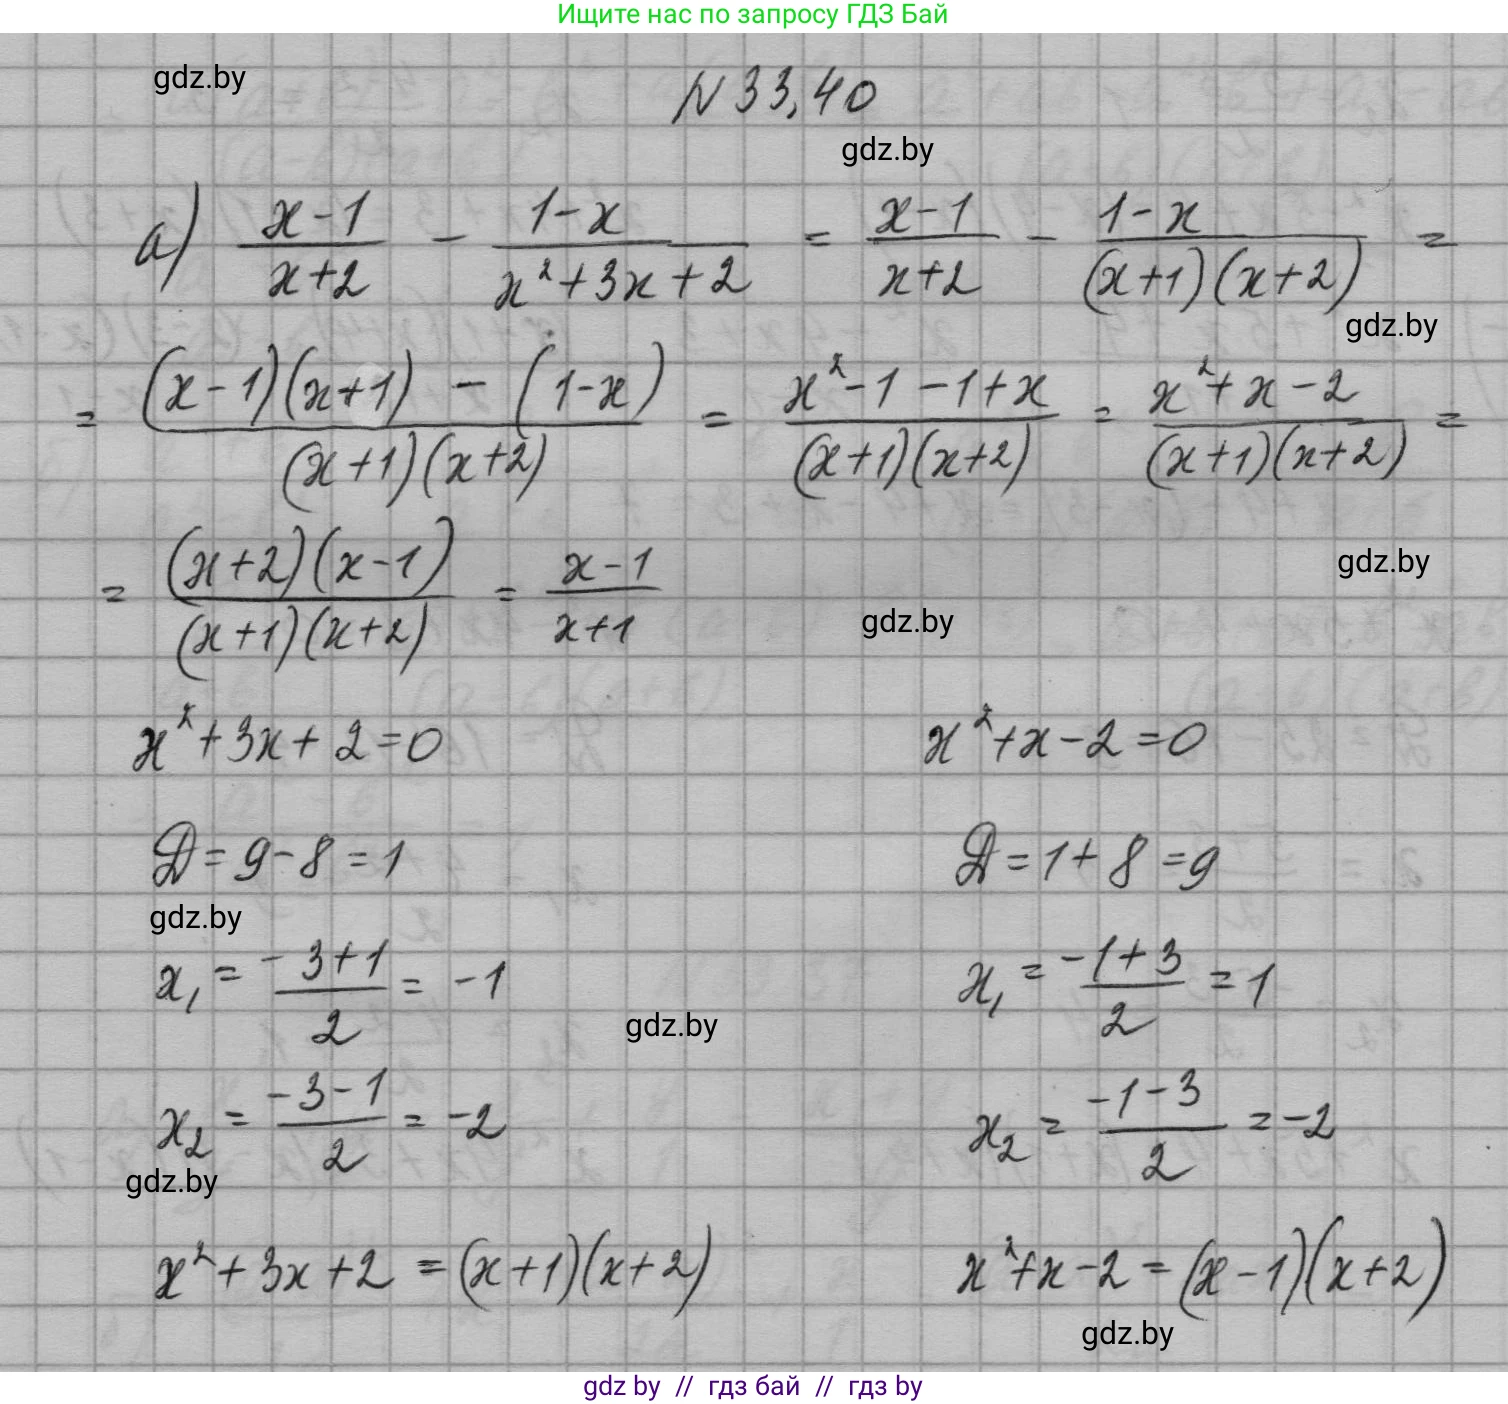 Ищите нас по запросу ГДЗ Бай
gdz.by
N 33,40
gdz.by
а) (x-1)/(x+2) - (1-x)/(x²+3x+2) = (x-1)/(x+2) - (1-x)/((x+1)(x+2)) =
gdz.by
= ((x-1)(x+1) - (1-x))/((x+1)(x+2)) = (x²-1-1+x)/((x+1)(x+2)) = (x²+x-2)/((x+1)(x+2)) =
gdz.by
= ((x+2)(x-1))/((x+1)(x+2)) = (x-1)/(x+1)
gdz.by
x²+3x+2=0 x²+x-2=0
Д=9-8=1 Д=1+8=9
gdz.by
x₁ = (-3+1)/2 = -1 x₁ = (-1+3)/2 = 1
gdz.by
x₂ = (-3-1)/2 = -2 x₂ = (-1-3)/2 = -2
gdz.by
x²+3x+2 = (x+1)(x+2) x²+x-2 = (x-1)(x+2)
gdz.by
gdz by // гдз бай // гдз by